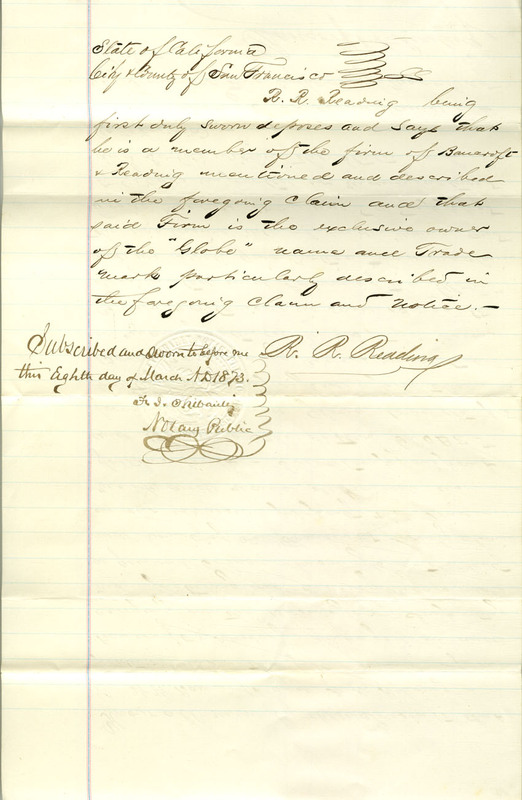 State of California
City & County of San Francisco
R. R. Reading being
first duly sworn deposes and says that
he is a member of the firm of Bancroft
& Reading mentioned and described
in the foregoing claim and that
said Firm is the exclusive owner
of the "Globe" name and Trade
mark particularly described in
the foregoing claim and notice.—
R. R. Reading
Subscribed and sworn to before me
this Eighth day of March AD 1873.
F. J. Thibault
Notary Public